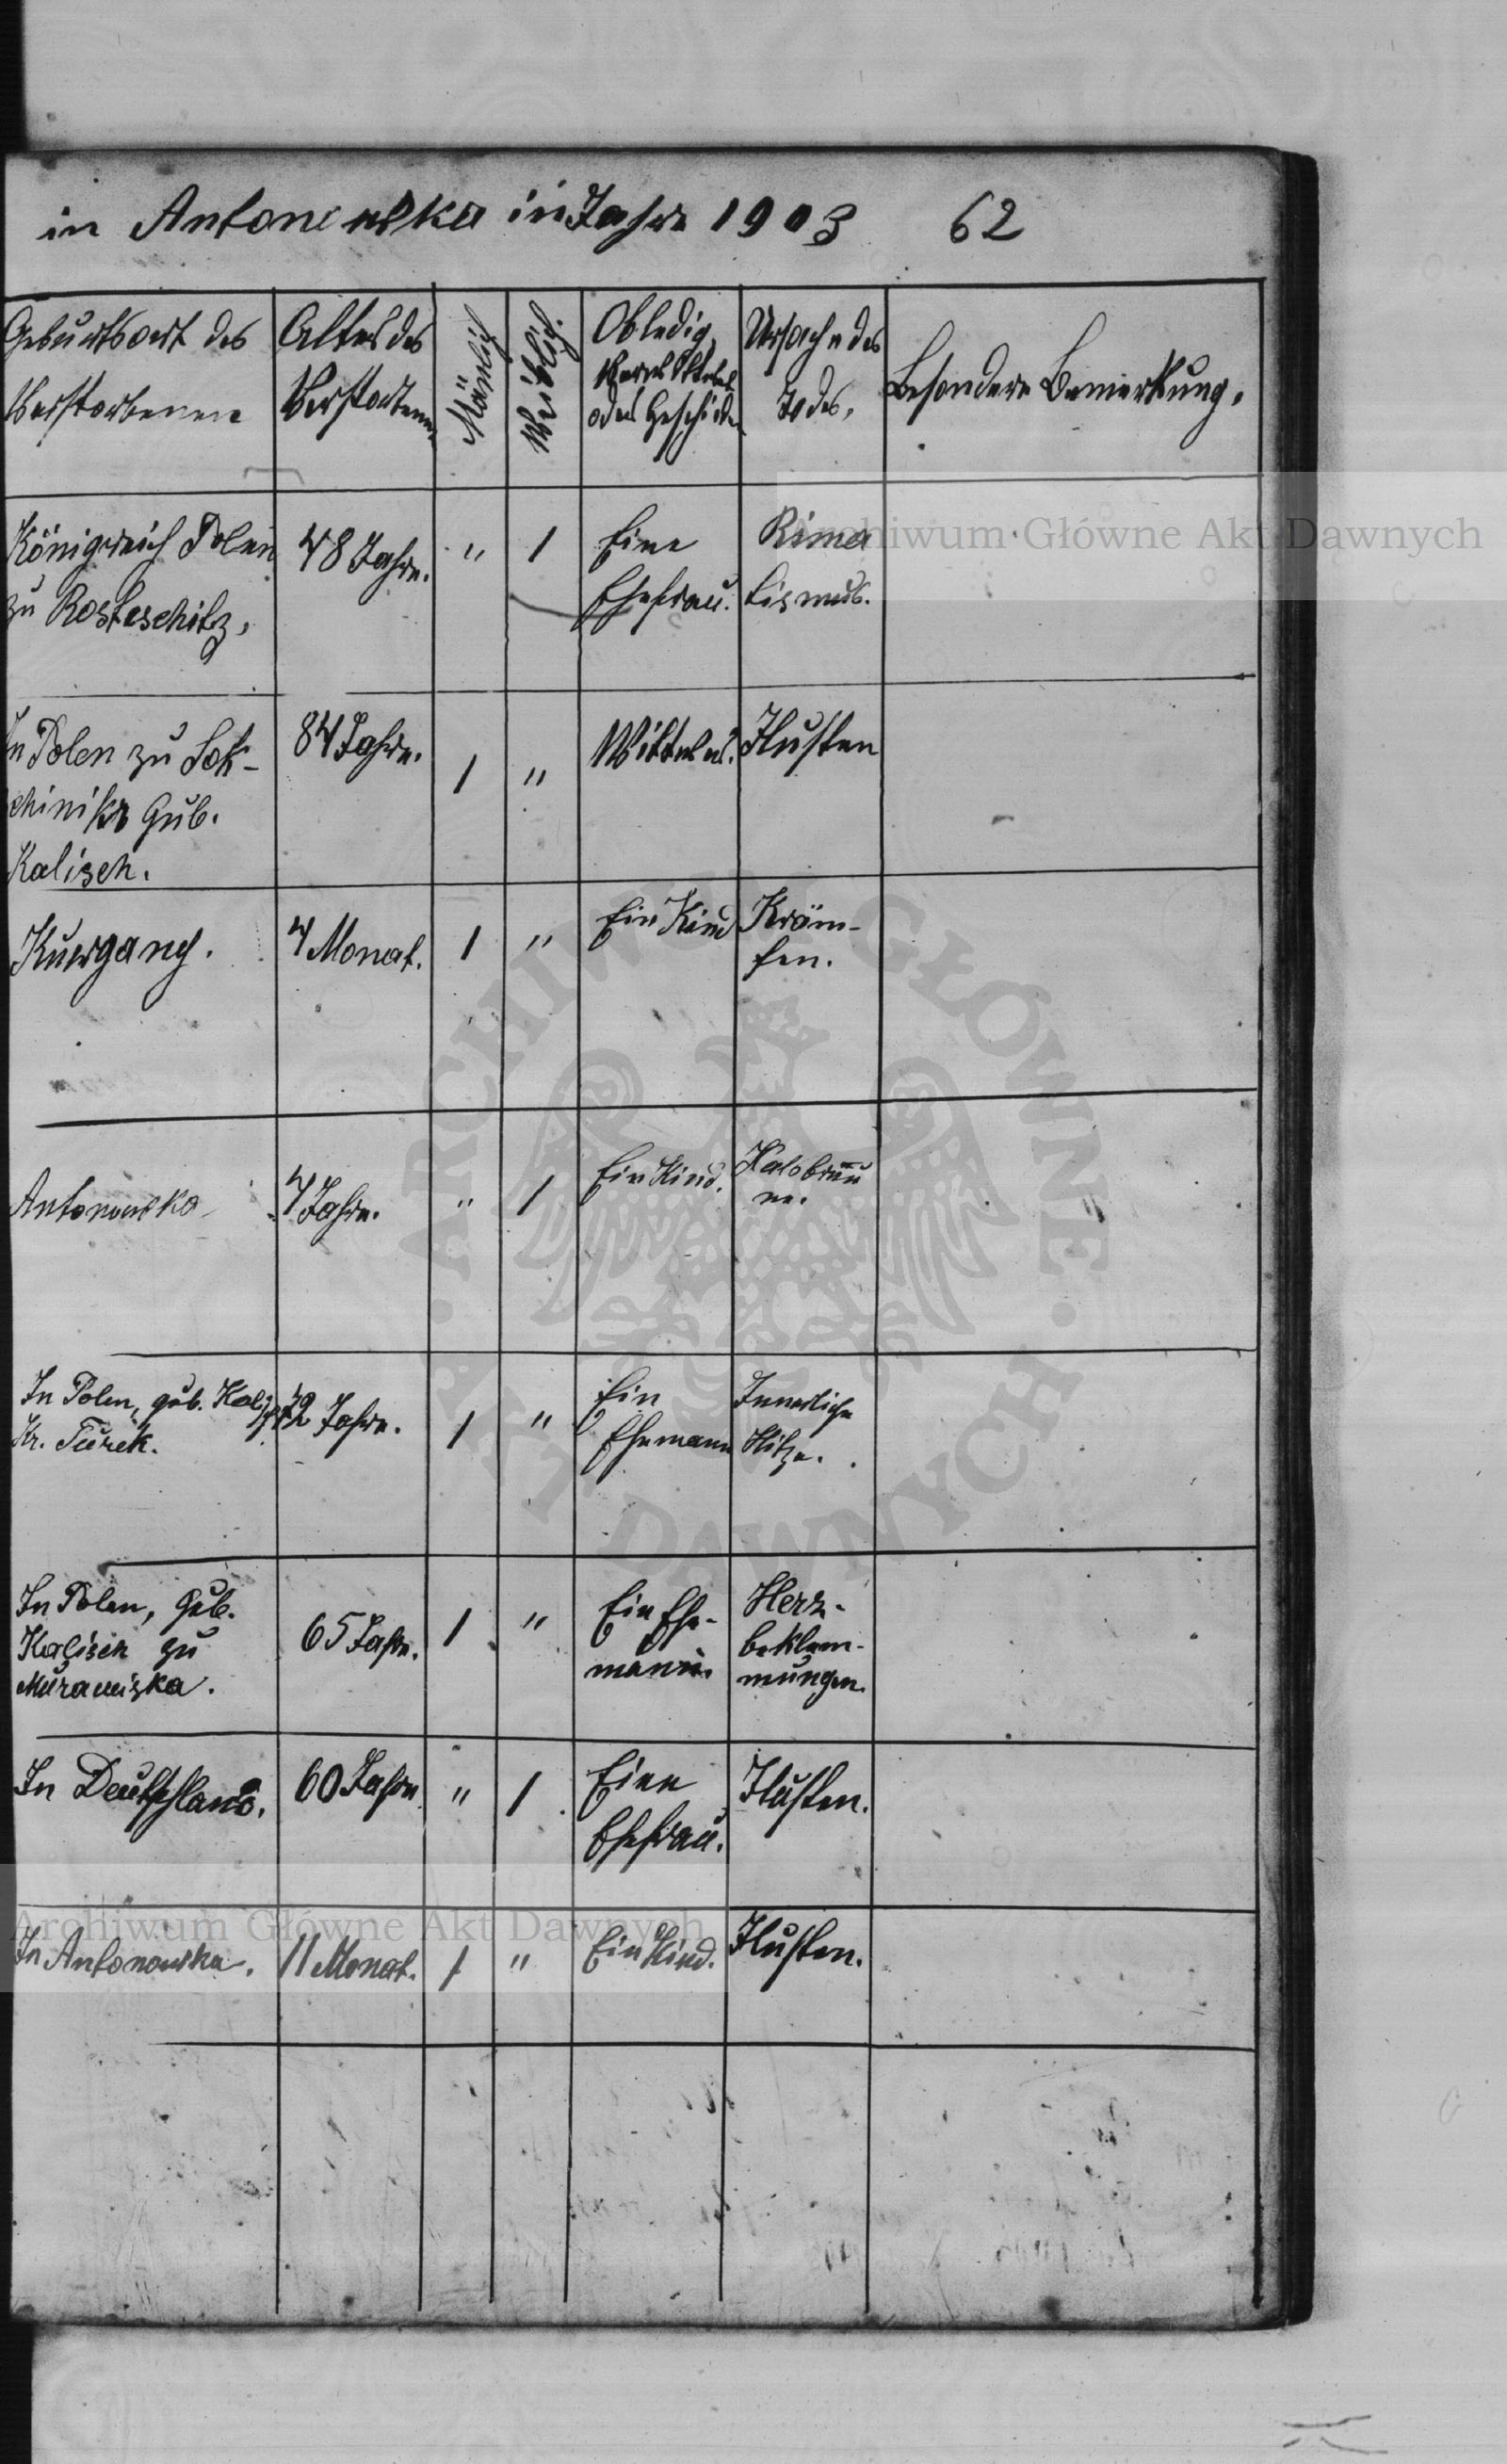 in Antonowka im Jahre 1903 62
Geburtsort des
Verstorbenen
Alter des
Verstorbenen
Mänlich
Weiblich.
Ob ledig,
oder Geschieden
Ursache des
Todes.
Besondere Bemerkung.
Königreich Polen
zu Rosteschitz,
48 Jahre.
" 1
Eine
Ehefrau.
Rima
tismus.
In Polen zu Sok-
Gub.
Kalisch.
84 Jahre.
1 "
Wittwer.
Husten
Kurgany.
4 Monat.
1 "
Ein Kind
Kräm-
fen.
Antonowka
4 Jahre.
" 1
Ein Kind.
Halsbräu
ne.
In Polen, gub. Kalisch
Kr. Turek.
72 Jahre.
1 "
Ein
Ehemann
Innerliche
Hitze.
In Polen, Gub.
Kalisch zu
65 Jahre.
1 "
Ein Ehe-
mann.
Herz-
beklem-
mungen.
In Deutschland.
60 Jahre
" 1
Eine
Ehefrau.
Husten.
In Antonowka.
11 Monat.
1 "
Ein Kind.
Husten.
Archiwum Główne Akt Dawnych
Archiwum Główne Akt Dawnych
ARCHIWUM GŁÓWNE AKT DAWNYCH